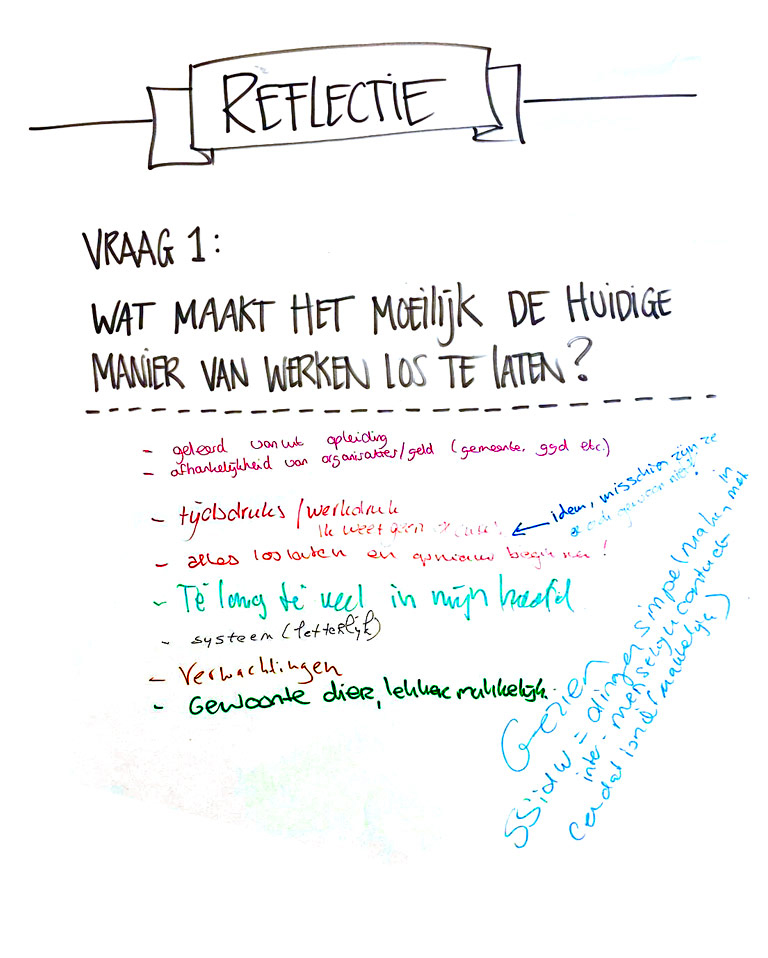 REFLECTIE
VRAAG 1:
WAT MAAKT HET MOEILIJK DE HUIDIGE
MANIER VAN WERKEN LOS TE LATEN?
- geleerd vanuit opleiding
- afhankelijkheid van organisaties/geld (gemeente, ggd etc.)
- tijdsdruk/werkdruk
Ik weet geen
idem, misschien zijn ze
er ook gewoon niet!
- alles loslaten en opnieuw beginnen!
- Té lang té veel in mijn hoofd
- systeem (letterlijk)
- Verwachtingen
- Gewoonte dier, lekker makkelijk.
Gezien
= dingen simpel maken in
inter-menselijk contact met
(en dat is niet makkelijk)